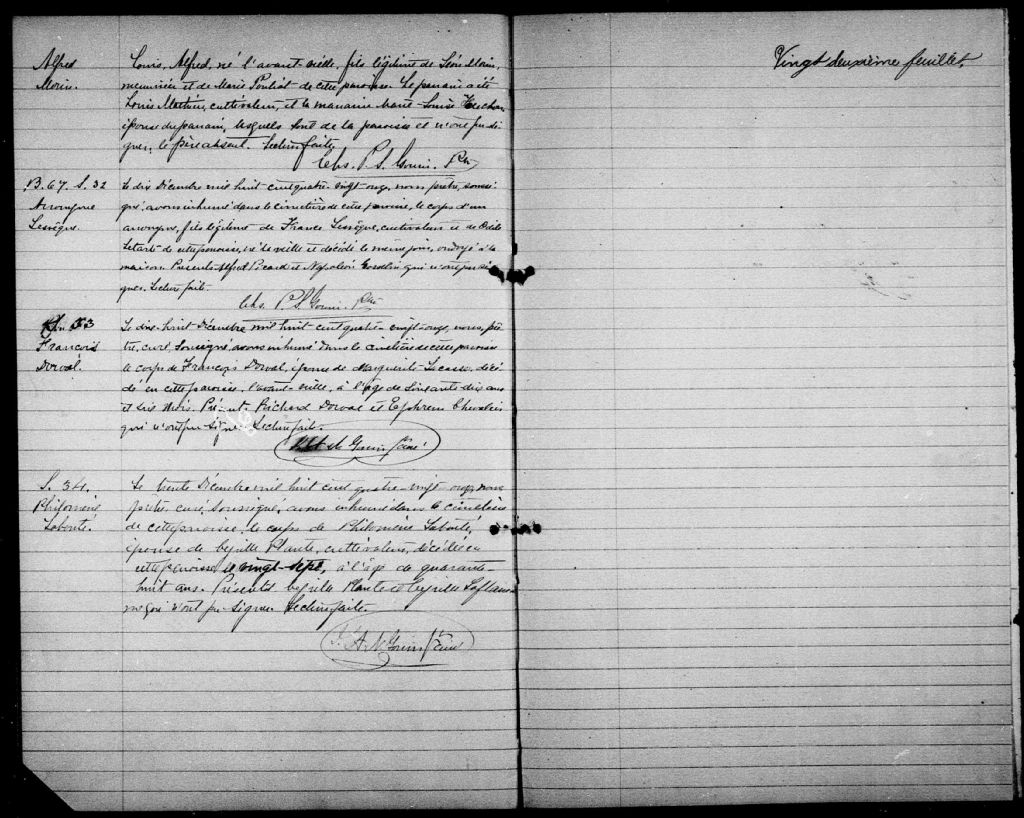 Alfred
Morin.
Louis, Alfred, né l'avant-veille, fils légitime de Léon Morin,
menuisier et de Marie Pouliot de cette paroisse. Le parrain a été
Louis Mathieu, cultivateur, et la marraine Marie-Louise
épouse du parrain, lesquels sont de la paroisse et n'ont pu si-
gner, le père absent. Lecture faite,
Chs. P. S. Gouin. Ptre
B. 67. S. 32
Anonyme
Lessègue.
Le dix Décembre mil huit-cent quatre-vingt-onze, nous prêtre, soussi-
gné, avons inhumé dans le cimetière de cette paroisse, le corps d'un
anonyme, fils légitime de Francs Lessègue, cultivateur et de Odile
Letarte de cette paroisse, né la veille et décédé le même jour, ondoyé à la
maison. Présents Alfred Picard et Napoléon Gosselin qui n'ont pu si-
gner. Lecture faite.
Chs. P. S. Gouin. Ptre
33
François
Dorval.
Le dix-huit Décembre mil huit-cent quatre-vingt-onze, nous, prê-
tre, curé, soussigné, avons inhumé dans le cimetière de cette paroisse
le corps de François Dorval, époux de Marguerite Lacasse, décé-
dé en cette paroisse, l'avant-veille, à l'âge de soixante-dix ans
et six mois. Présents Richard Dorval et Ephrem Chevalier
qui n'ont pu signer. Lecture faite.
Gouin Ptre curé
S. 34.
Philomène
Labonté.
Le trente Décembre mil huit cent quatre-vingt onze, nous
prêtre, curé, soussigné, avons inhumé dans le cimetière
de cette paroisse, le corps de Philomène Labonté,
épouse de Cyrille Plante, cultivateur, décédée en
cette paroisse, le vingt-sept, à l'âge de quarante-
huit ans. Présents Cyrille Plante et Cyrille Laflam-
me qui n'ont pu signer. Lecture faite.
J. A. N. Gouin Ptre Curé
Vingt deuxième feuillet.